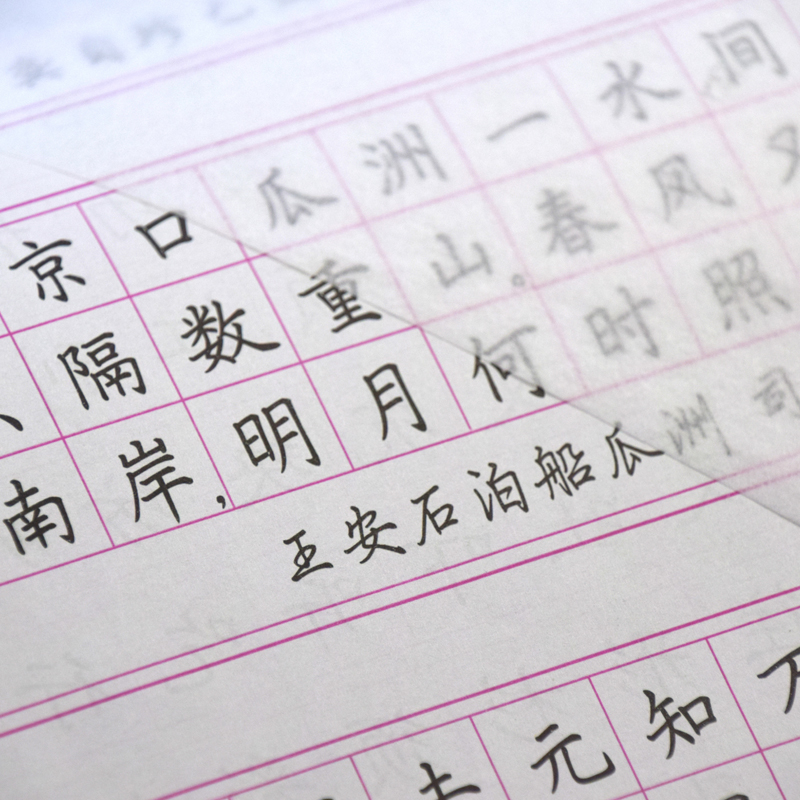 京口瓜洲一水间
、隔数重山。春风又
南岸,明月何时照
王安石泊船瓜洲 司
元知万